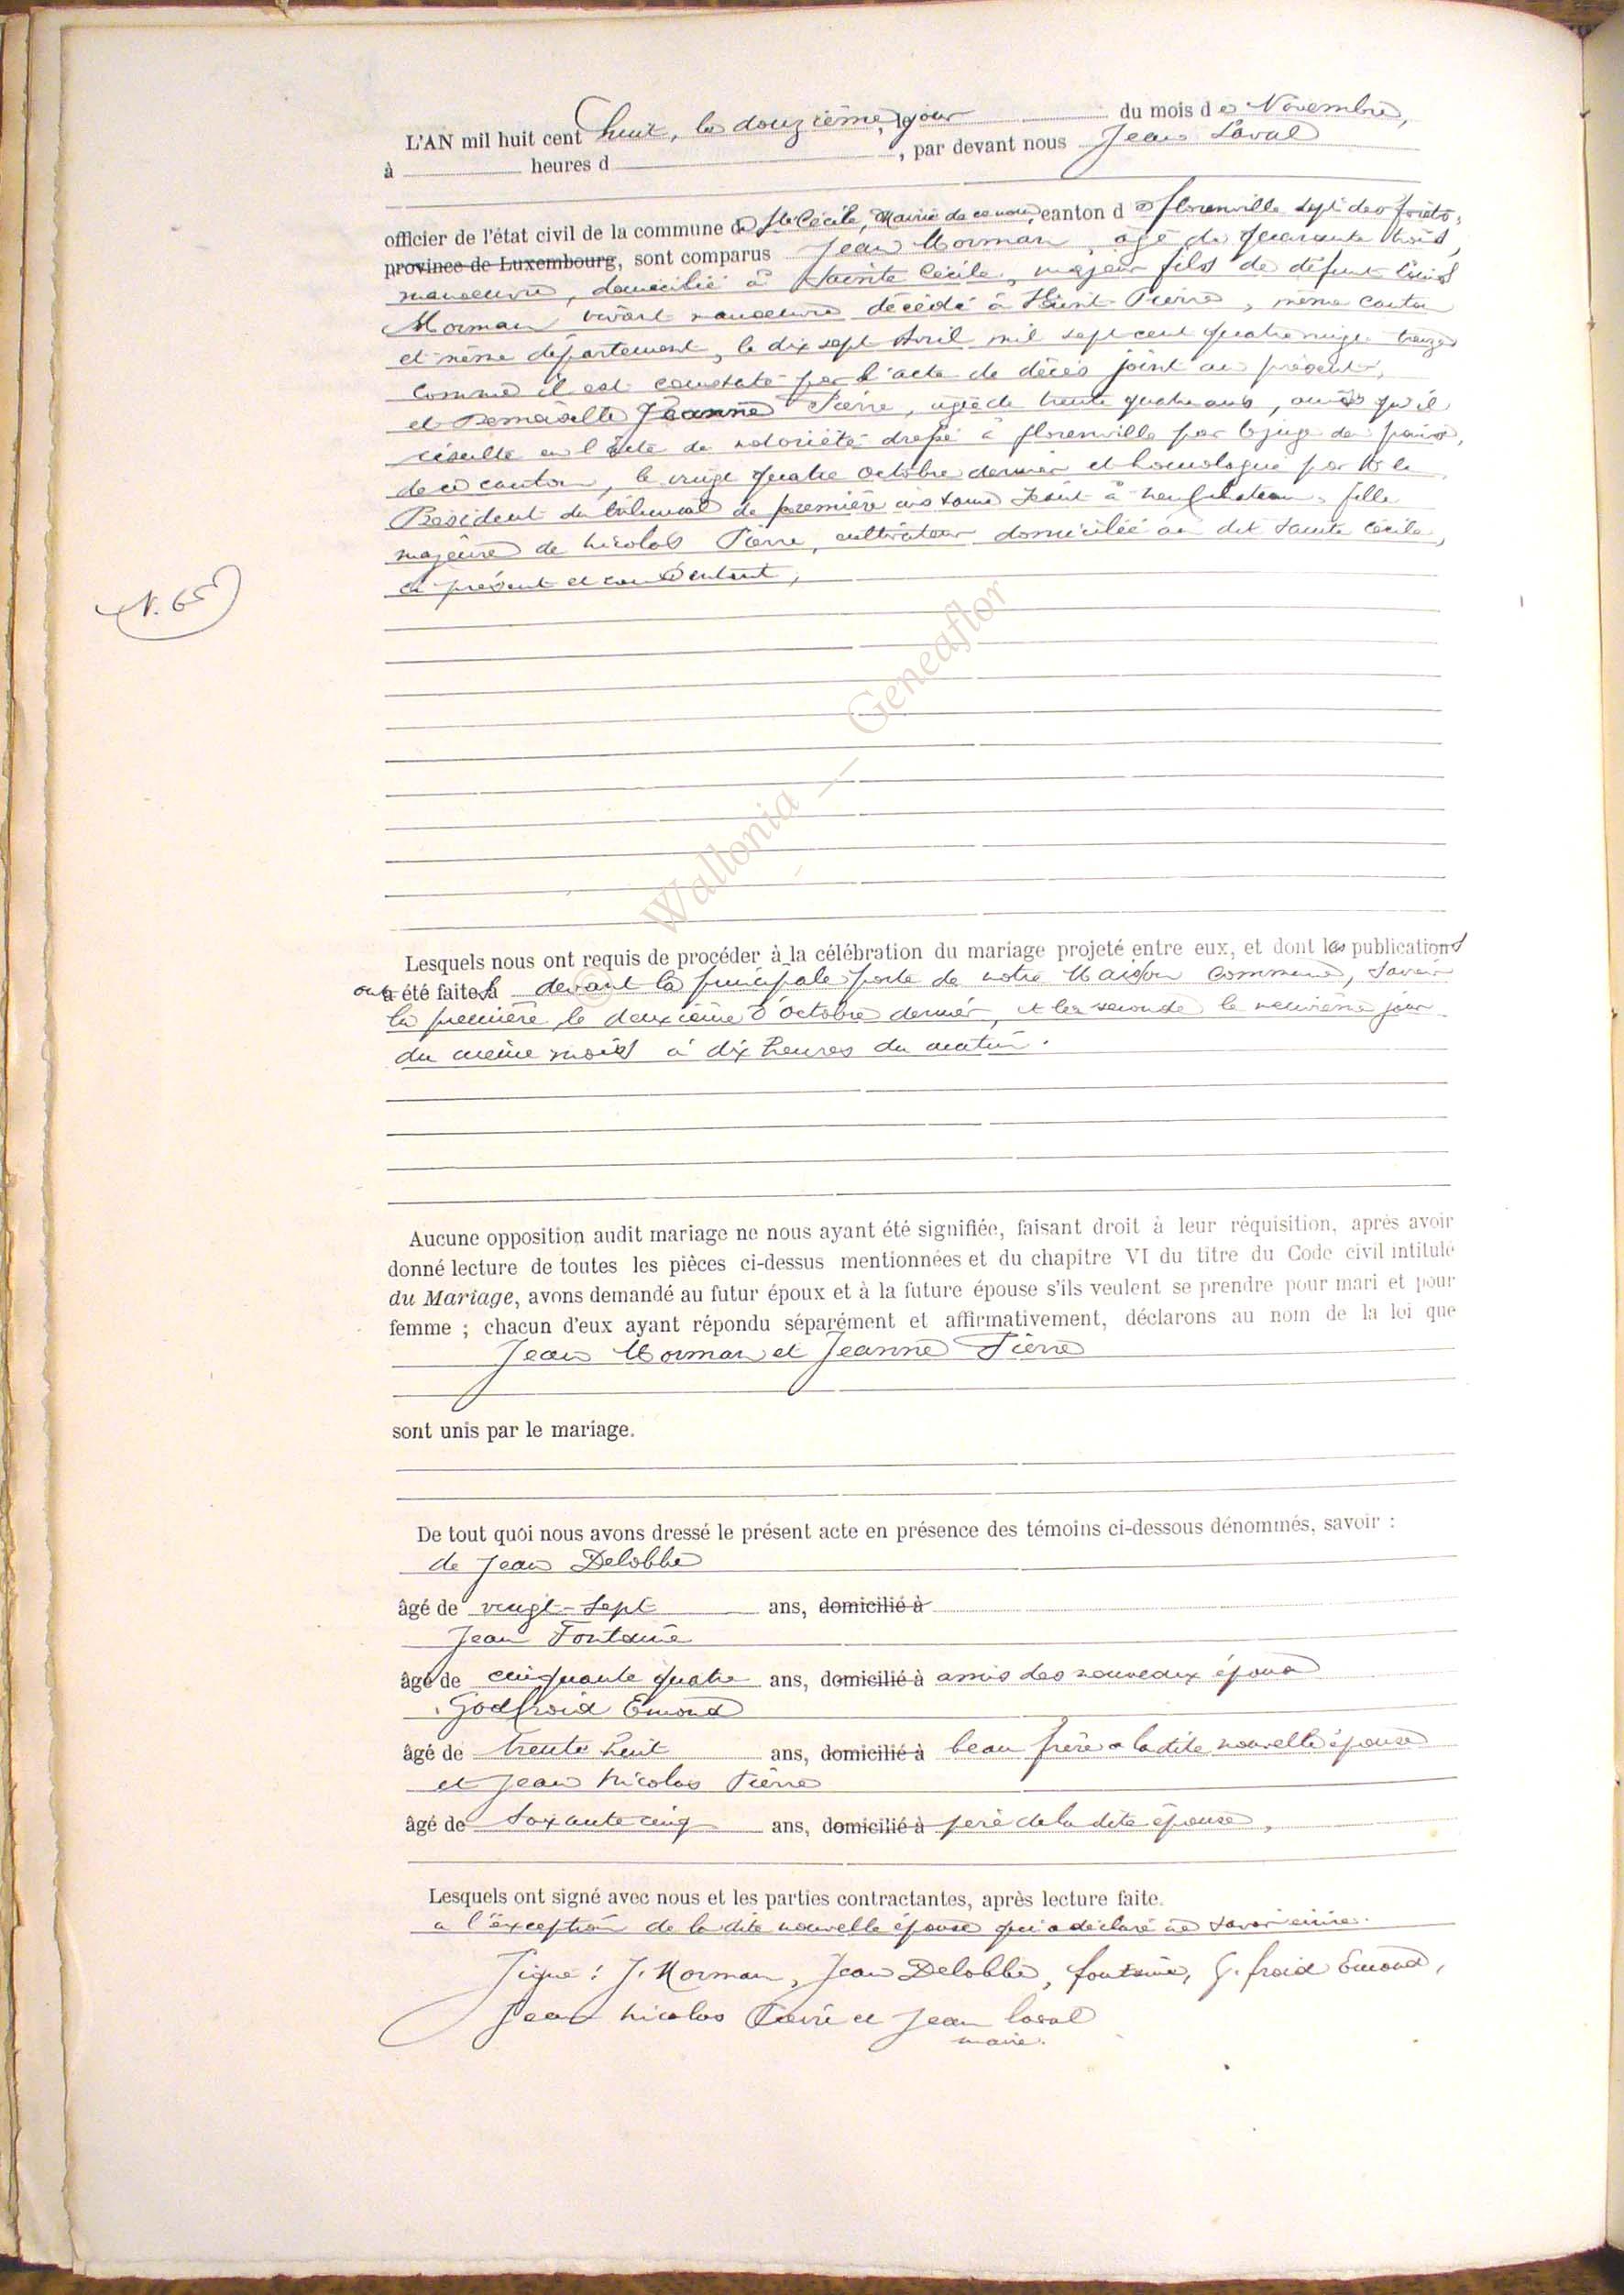 L'AN mil huit cent huit, le douzième jour du mois de Novembre,
à heures d , par devant nous Jean Laval
officier de l'état civil de la commune de Ste Cécile, Mairie de ce nom, canton de florenville dept des forêts,
province de Luxembourg, sont comparus Jean Morman, agé de quarante trois,
manoeuvre, domicilié à Sainte Cécile, majeur fils de défunt Louis
Morman vivant manoeuvre décédé à Saint Pierre, même canton
et même département, le dix sept Avril mil sept cent quatre vingt treize
comme il est constaté par l'acte de décès joint au présent,
et Demoiselle Jeanne Pierre, agée de trente quatre ans, qu'il
résulte en l'acte de notoriété dressé à florenville par le juge de paix,
de ce canton, le vingt quatre Octobre dernier et homologué par le
Président du tribunal de première instance séant à neufchateau, fille
majeure de Nicolas Pierre, cultivateur domicilié au dit Sainte Cécile,
ci présent et consentant,
N. 65
Lesquels nous ont requis de procéder à la célébration du mariage projeté entre eux, et dont les publications
ont été faites devant la principale porte de notre Maison Commune, savoir
la première le deuxième d'octobre dernier, et la seconde le neuvième jour
du même mois à dix heures du matin.
Wallonia — Geneaflor
Aucune opposition audit mariage ne nous ayant été signifiée, faisant droit à leur réquisition, après avoir
donné lecture de toutes les pièces ci-dessus mentionnées et du chapitre VI du titre du Code civil intitulé
du Mariage, avons demandé au futur époux et à la future épouse s'ils veulent se prendre pour mari et pour
femme ; chacun d'eux ayant répondu séparément et affirmativement, déclarons au nom de la loi que
Jean Morman et Jeanne Pierre
sont unis par le mariage.
De tout quoi nous avons dressé le présent acte en présence des témoins ci-dessous dénommés, savoir :
de Jean Delobbe
âgé de vingt-sept ans, domicilié à
Jean Fontaine
âgé de cinquante quatre ans, domicilié à amis des nouveaux époux
Godfroid Emond
âgé de trente huit ans, domicilié à beau frère a la dite nouvelle épouse
et Jean Nicolas Pierre
âgé de soxante cinq ans, domicilié à père de la dite épouse,
Lesquels ont signé avec nous et les parties contractantes, après lecture faite.
a l'exception de la dite nouvelle épouse qui a déclaré ne savoir écrire.
Signé : J. Morman, Jean Delobbe, fontaine, G. froid Emond,
Jean Nicolas Pierre et Jean Laval
maire.